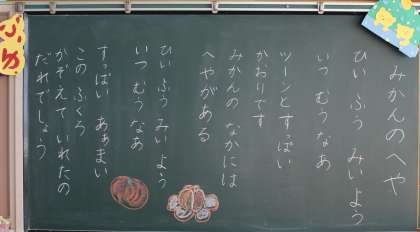 みかんのへや
ひい ふう みい よう
いつ むう なあ
ツーンとすっぱい
かおりです
みかんの なかには
へやがある
ひい ふう みい よう
いつ むう なあ
すっぱい あまい
この ふくろ
かぞえていれたの
だれでしょう